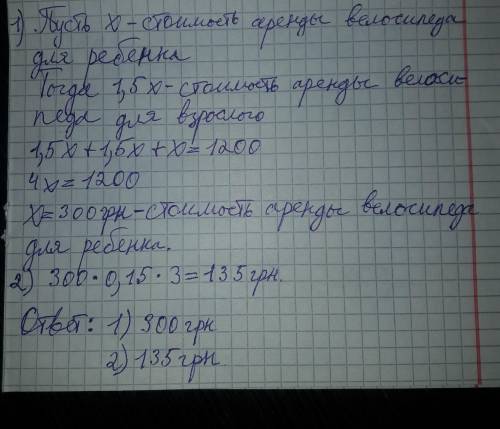 1) Пусть х - стоимость аренды велосипеда
для ребенка
Тогда 1,5х - стоимость аренды велоси-
педа для взрослого
1,5х + 1,5х + х = 1200
4х = 1200
х = 300 грн - стоимость аренды велосипеда
для ребенка.
2) 300 · 0,15 · 3 = 135 грн.
Ответ: 1) 300 грн
2) 135 грн